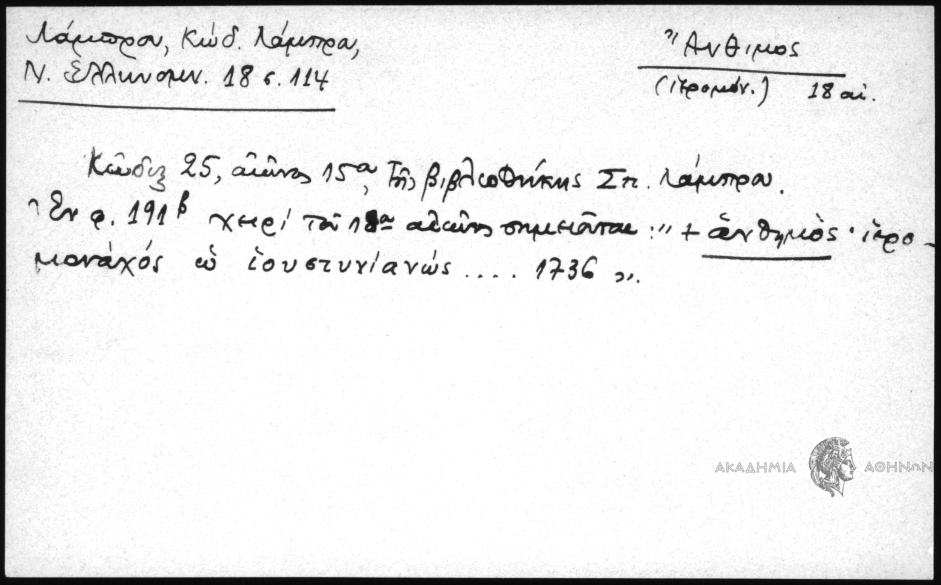 Λάμπρου, Κώδ. Λάμπρου,
Ν. Ἑλληνομν. 18 σ. 114
Ἄνθιμος
(ἱερομόν.) 18 αἰ.
Κῶδιξ 25, αἰῶνος 15ου, τῆς βιβλιοθήκης Σπ. Λάμπρου.
Ἐν φ. 191β χειρὶ τοῦ 18ου αἰῶνος σημειοῦται: "+ ἀνθημὸς ἱερο-
μονάχός ὡ ἱουστυνιανώς .... 1736".
ΑΚΑΔΗΜΙΑ ΑΘΗΝΩΝ